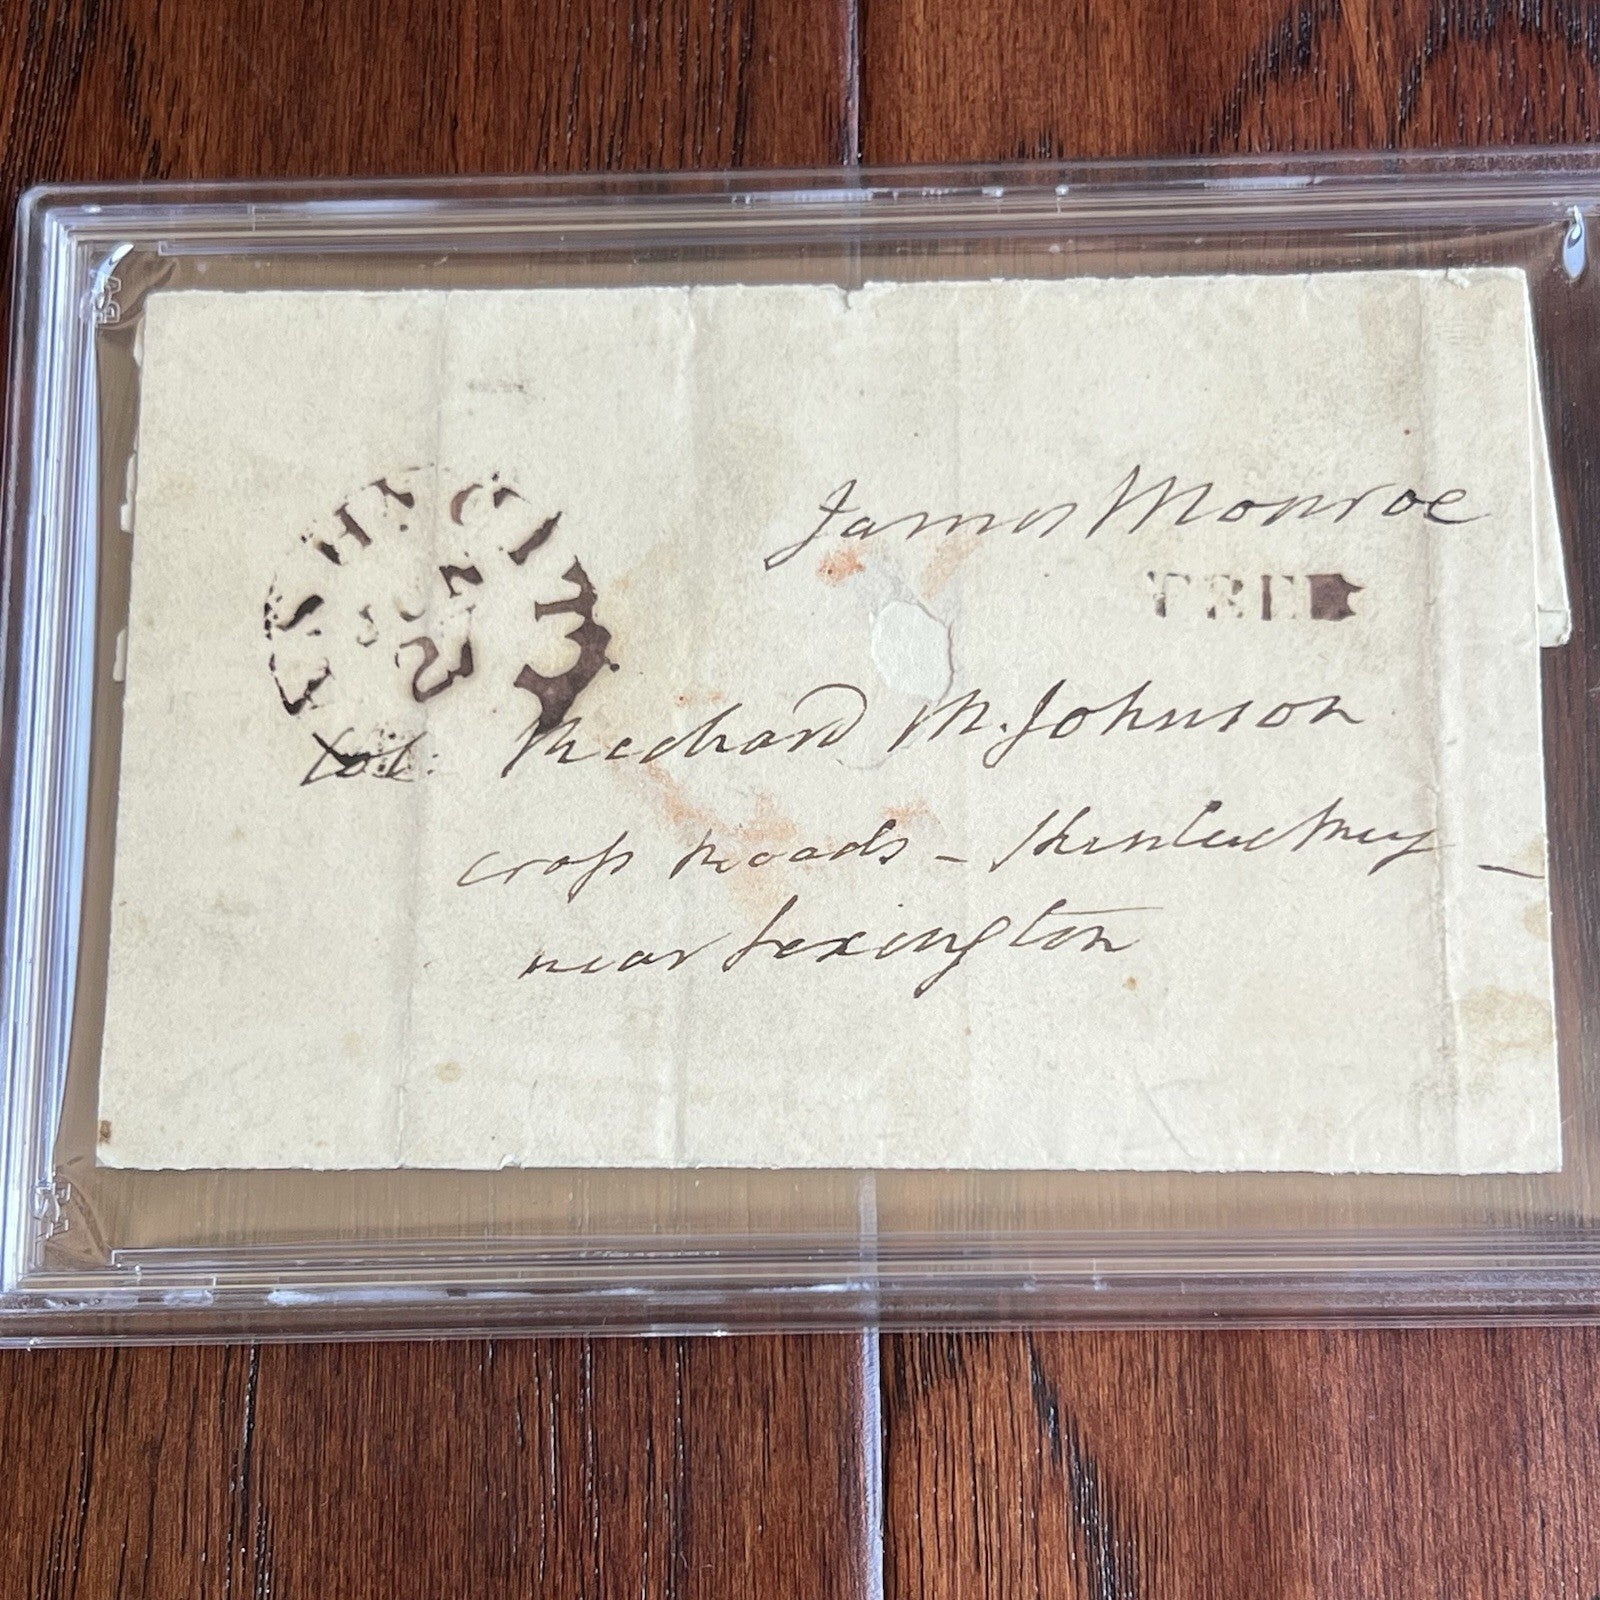 James Monroe
FREE
WASHN CITY
Col: Richard M. Johnson
cross Roads - Kentuckey -
near Lexington